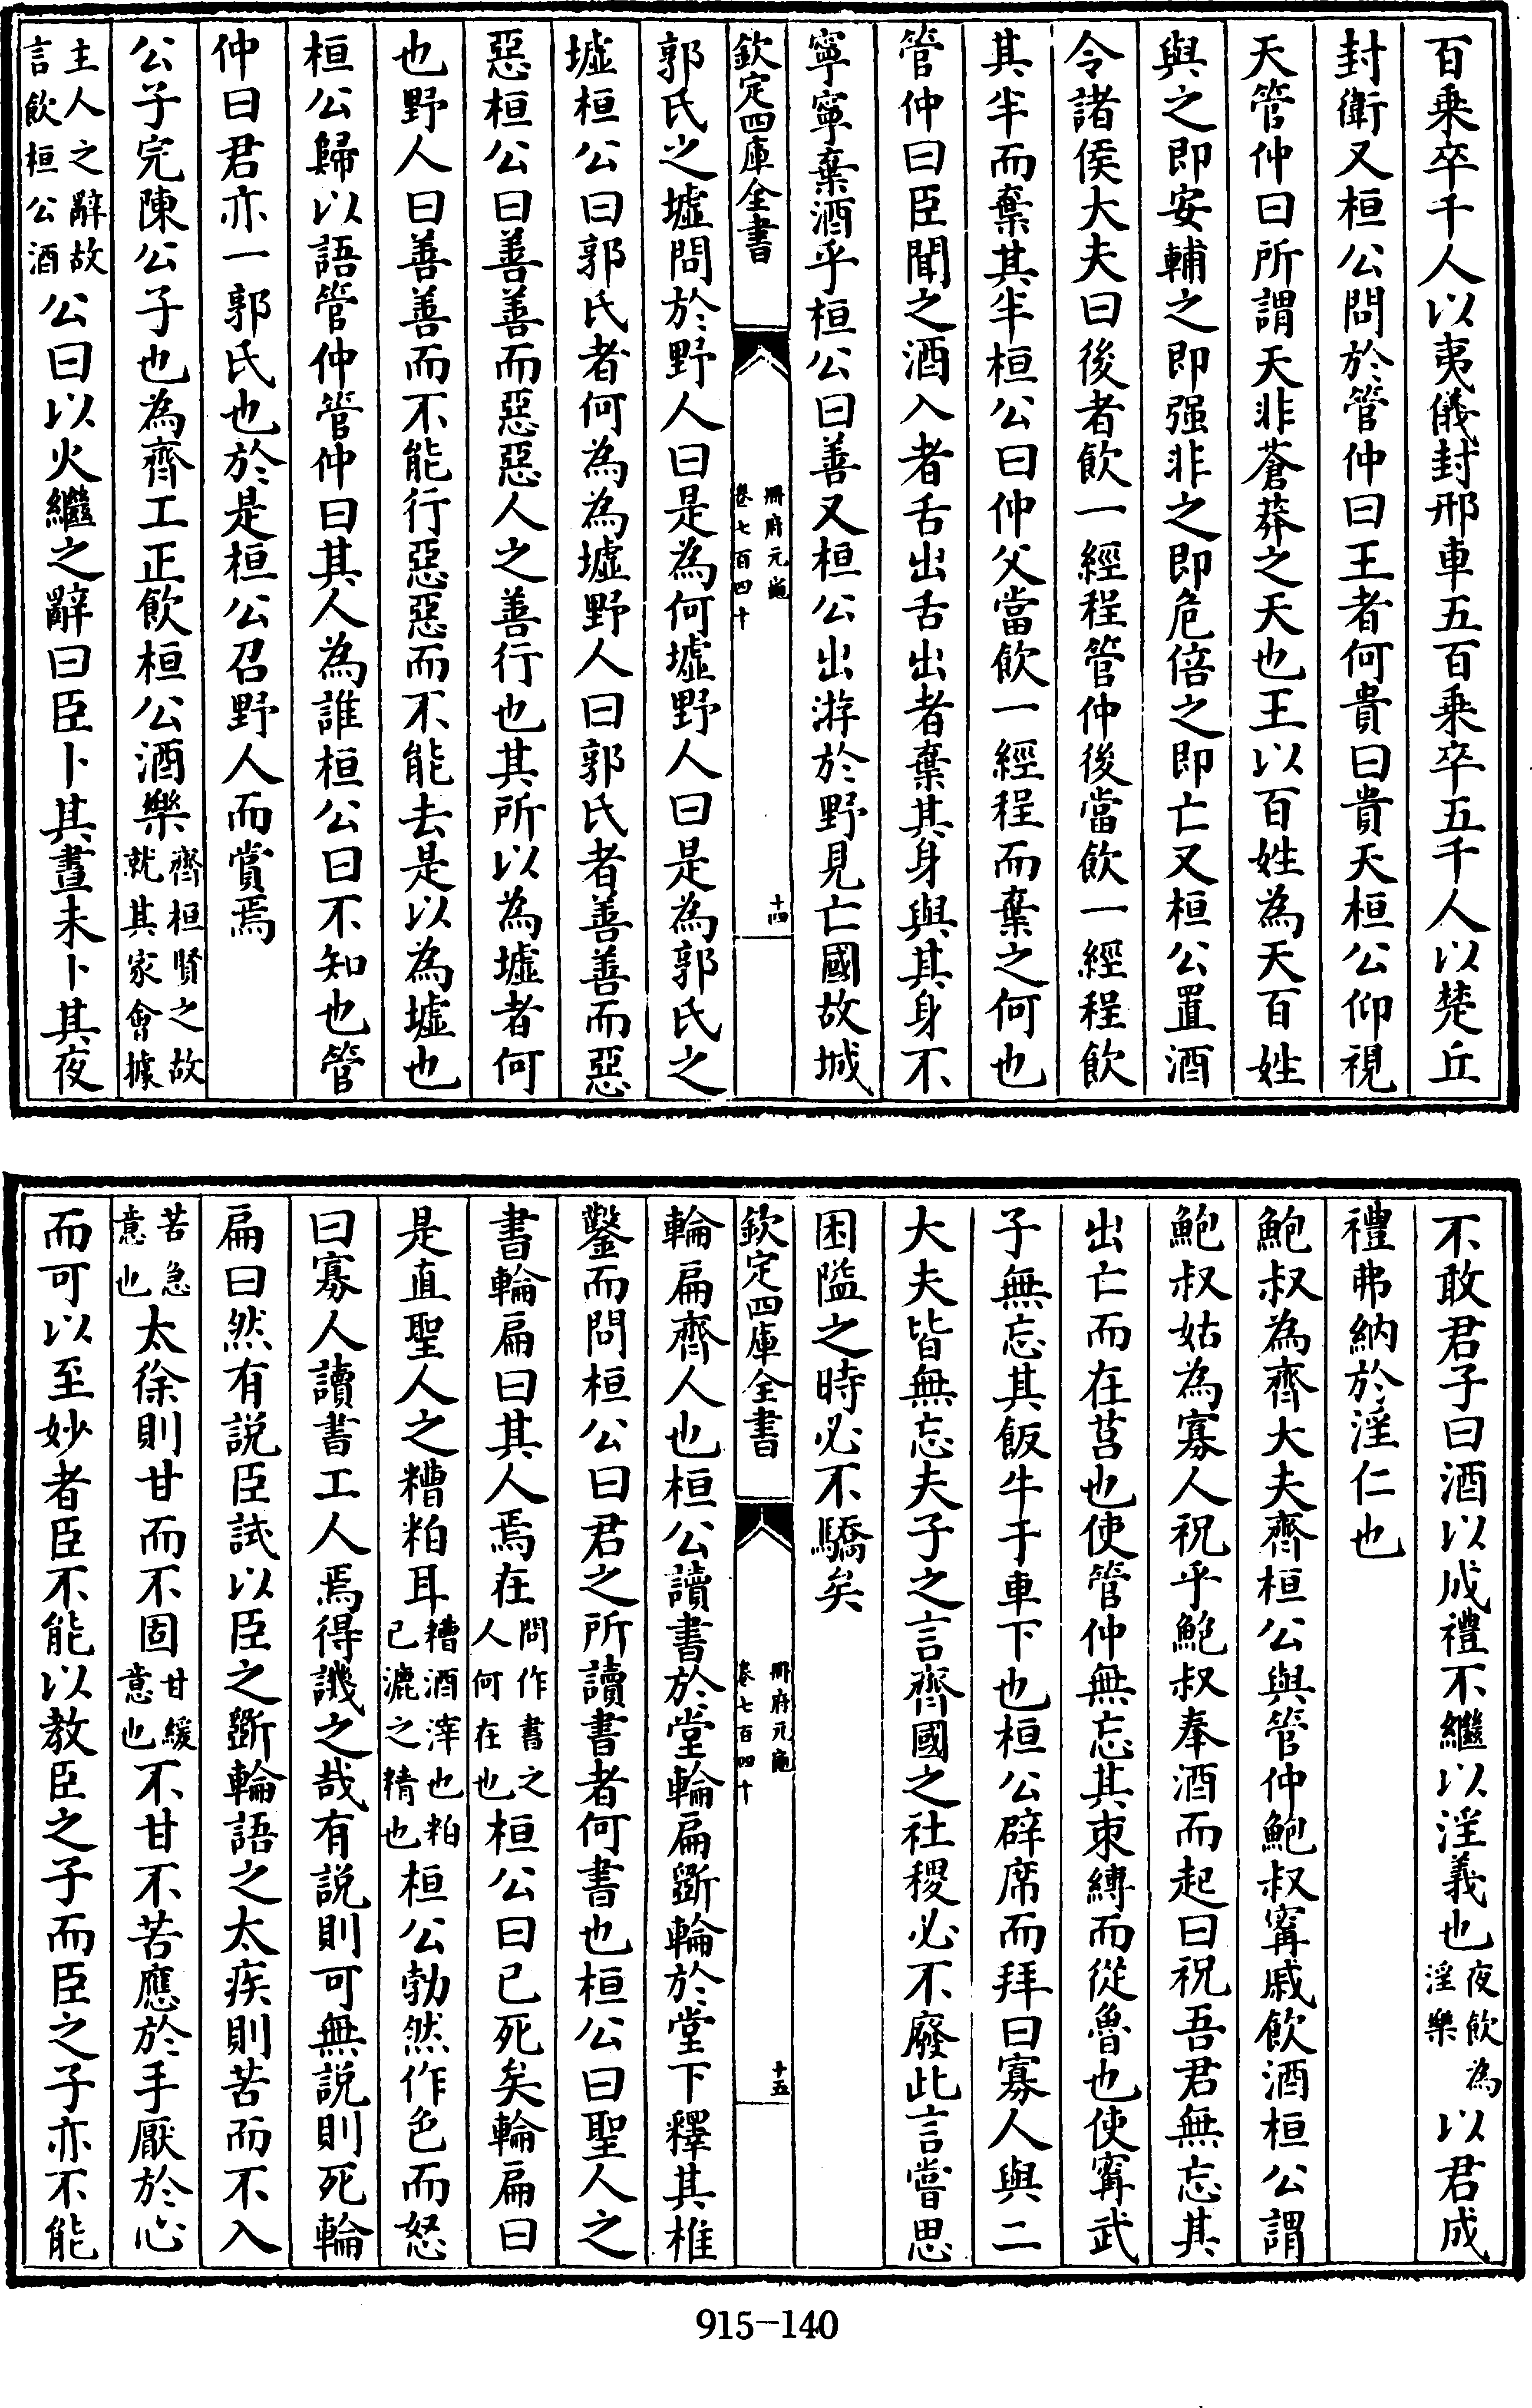 百乘卒千人以夷儀封邢車五百乘卒五千人以楚丘
封衛又桓公問於管仲曰王者何貴曰貴天桓公仰視
天管仲曰所謂天非蒼莽之天也王以百姓為天百姓
與之即安輔之即强非之即危倍之即亡又桓公置酒
令諸侯大夫曰後者飲一經程管仲後當飲一經程飲
其半而棄其半桓公曰仲父當飲一經程而棄之何也
管仲曰臣聞之酒入者舌出舌出者棄其身與其身不
寧寧棄酒乎桓公曰善又桓公出游於野見亡國故城
欽定四庫全書
冊府元龜
卷七百四十
十四
郭氏之墟問於野人曰是為何墟野人曰是為郭氏之
墟桓公曰郭氏者何為為墟野人曰郭氏者善善而惡
惡桓公曰善善而惡惡人之善行也其所以為墟者何
也野人曰善善而不能行惡惡而不能去是以為墟也
桓公歸以語管仲管仲曰其人為誰桓公曰不知也管
仲曰君亦一郭氏也於是桓公召野人而賞焉
公子完陳公子也為齊工正飲桓公酒樂齊桓賢之故就其家會據
主人之辭故言飲桓公酒公曰以火繼之辭曰臣卜其晝未卜其夜
不敢君子曰酒以成禮不繼以淫義也夜飲為淫樂以君成
禮弗納於淫仁也
鮑叔為齊大夫齊桓公與管仲鮑叔甯戚飲酒桓公謂
鮑叔姑為寡人祝乎鮑叔奉酒而起曰祝吾君無忘其
出亡而在莒也使管仲無忘其束縛而從魯也使甯武
子無忘其飯牛于車下也桓公辟席而拜曰寡人與二
大夫皆無忘夫子之言齊國之社稷必不廢此言嘗思
困隘之時必不驕矣
欽定四庫全書
冊府元龜
卷七百四十
十五
輪扁齊人也桓公讀書於堂輪扁斵輪於堂下釋其椎
鑿而問桓公曰君之所讀書者何書也桓公曰聖人之
書輪扁曰其人焉在問作書之人何在也桓公曰已死矣輪扁曰
是直聖人之糟粕耳糟酒滓也粕已漉之精也桓公勃然作色而怒
曰寡人讀書工人焉得譏之哉有説則可無説則死輪
扁曰然有説臣試以臣之斵輪語之太疾則苦而不入
苦急意也太徐則甘而不固甘緩意也不甘不苦應於手厭於心
而可以至妙者臣不能以教臣之子而臣之子亦不能
915-140